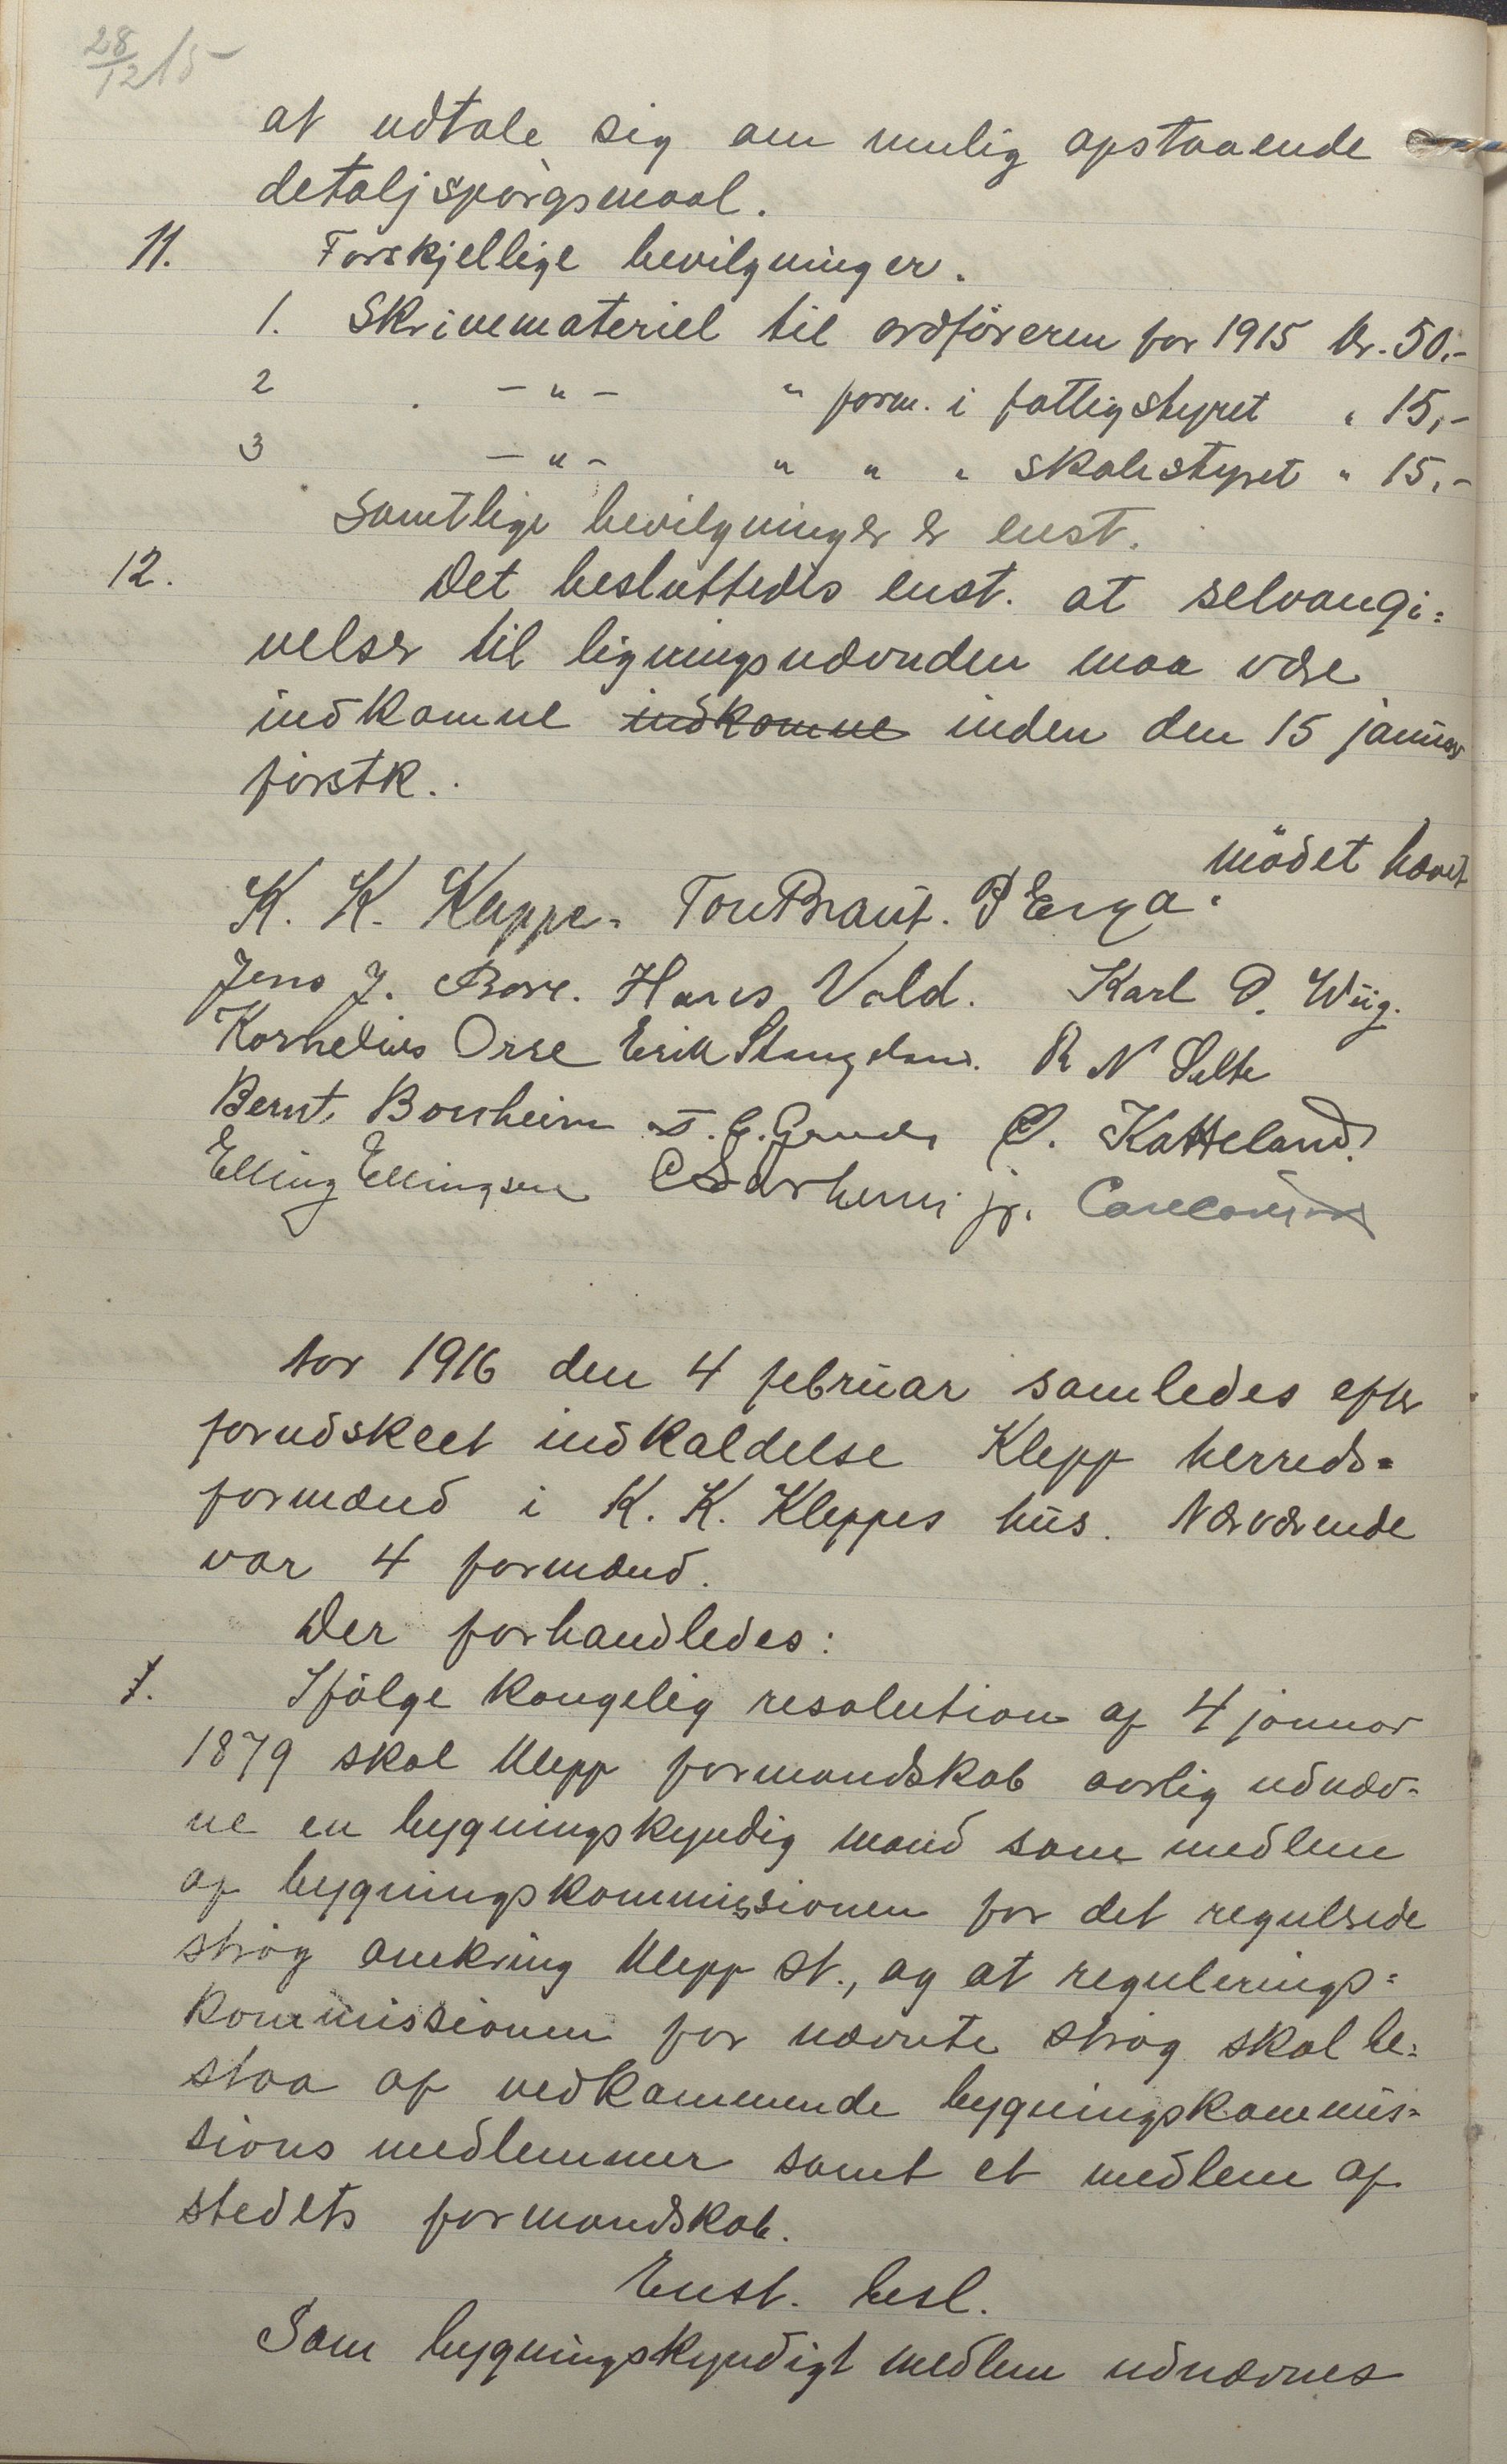 28/12 15
at udtale sig om mulig opstaaende
detaljspörgsmaal.
11. Forskjellige bevilgninger.
1. Skrivemateriel til ordföreren for 1915 kr. 50,-
2 -"- " form. i fattigstyret " 15,-
3 -"- " " " skolestyret " 15,-
Samtlige bevilgninger er enst.
12. Det besluttedes enst. at selvangi=
velser til ligningsnævnden maa være
indkomne indkomne inden den 15 januar
förstk.
Mödet hævet
K. K. Kleppe. Tore Braut. P Erga.
Jens J. Bore. Hans Vold. Karl O. Wiig.
Kornelius Orre Erik Stangeland. R N Salte
Bernt Borsheim C. Katteland.
Elling Ellingsen jr.
Aar 1916 den 4 februar samledes efter
forudskeet indkaldelse Klepp herreds=
formænd i K. K. Kleppes hus. Nærværende
var 4 formænd.
Der forhandledes:
1. Ifölge kongelig resolution af 4 januar
1879 skal Klepp formandskab aarlig udnæv=
ne en bygningskyndig mand som medlem
af bygningskommissionen for det regulerede
strög omkring Klepp st., og at regulerings=
kommissionen for nævnte strög skal be=
staa af vedkommende bygningskommis=
sions medlemmer samt et medlem af
stedets formandskab.
Enst. besl.
Som bygningskyndigt medlem udnævnes